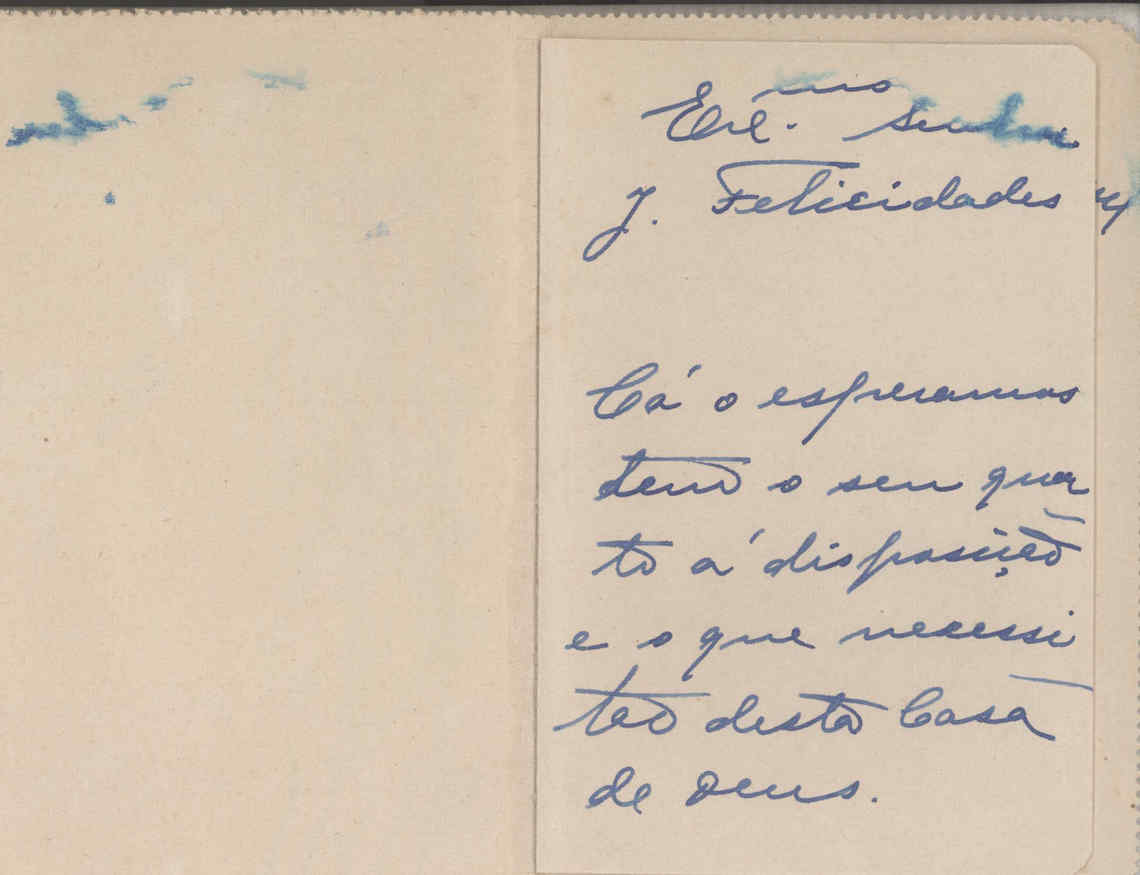 Exc.mo Senhor
J. Felicidades
Cá o esperamos
tem o seu quar
to á disposição
e o que necessi
tar desta Casa
de Deus.